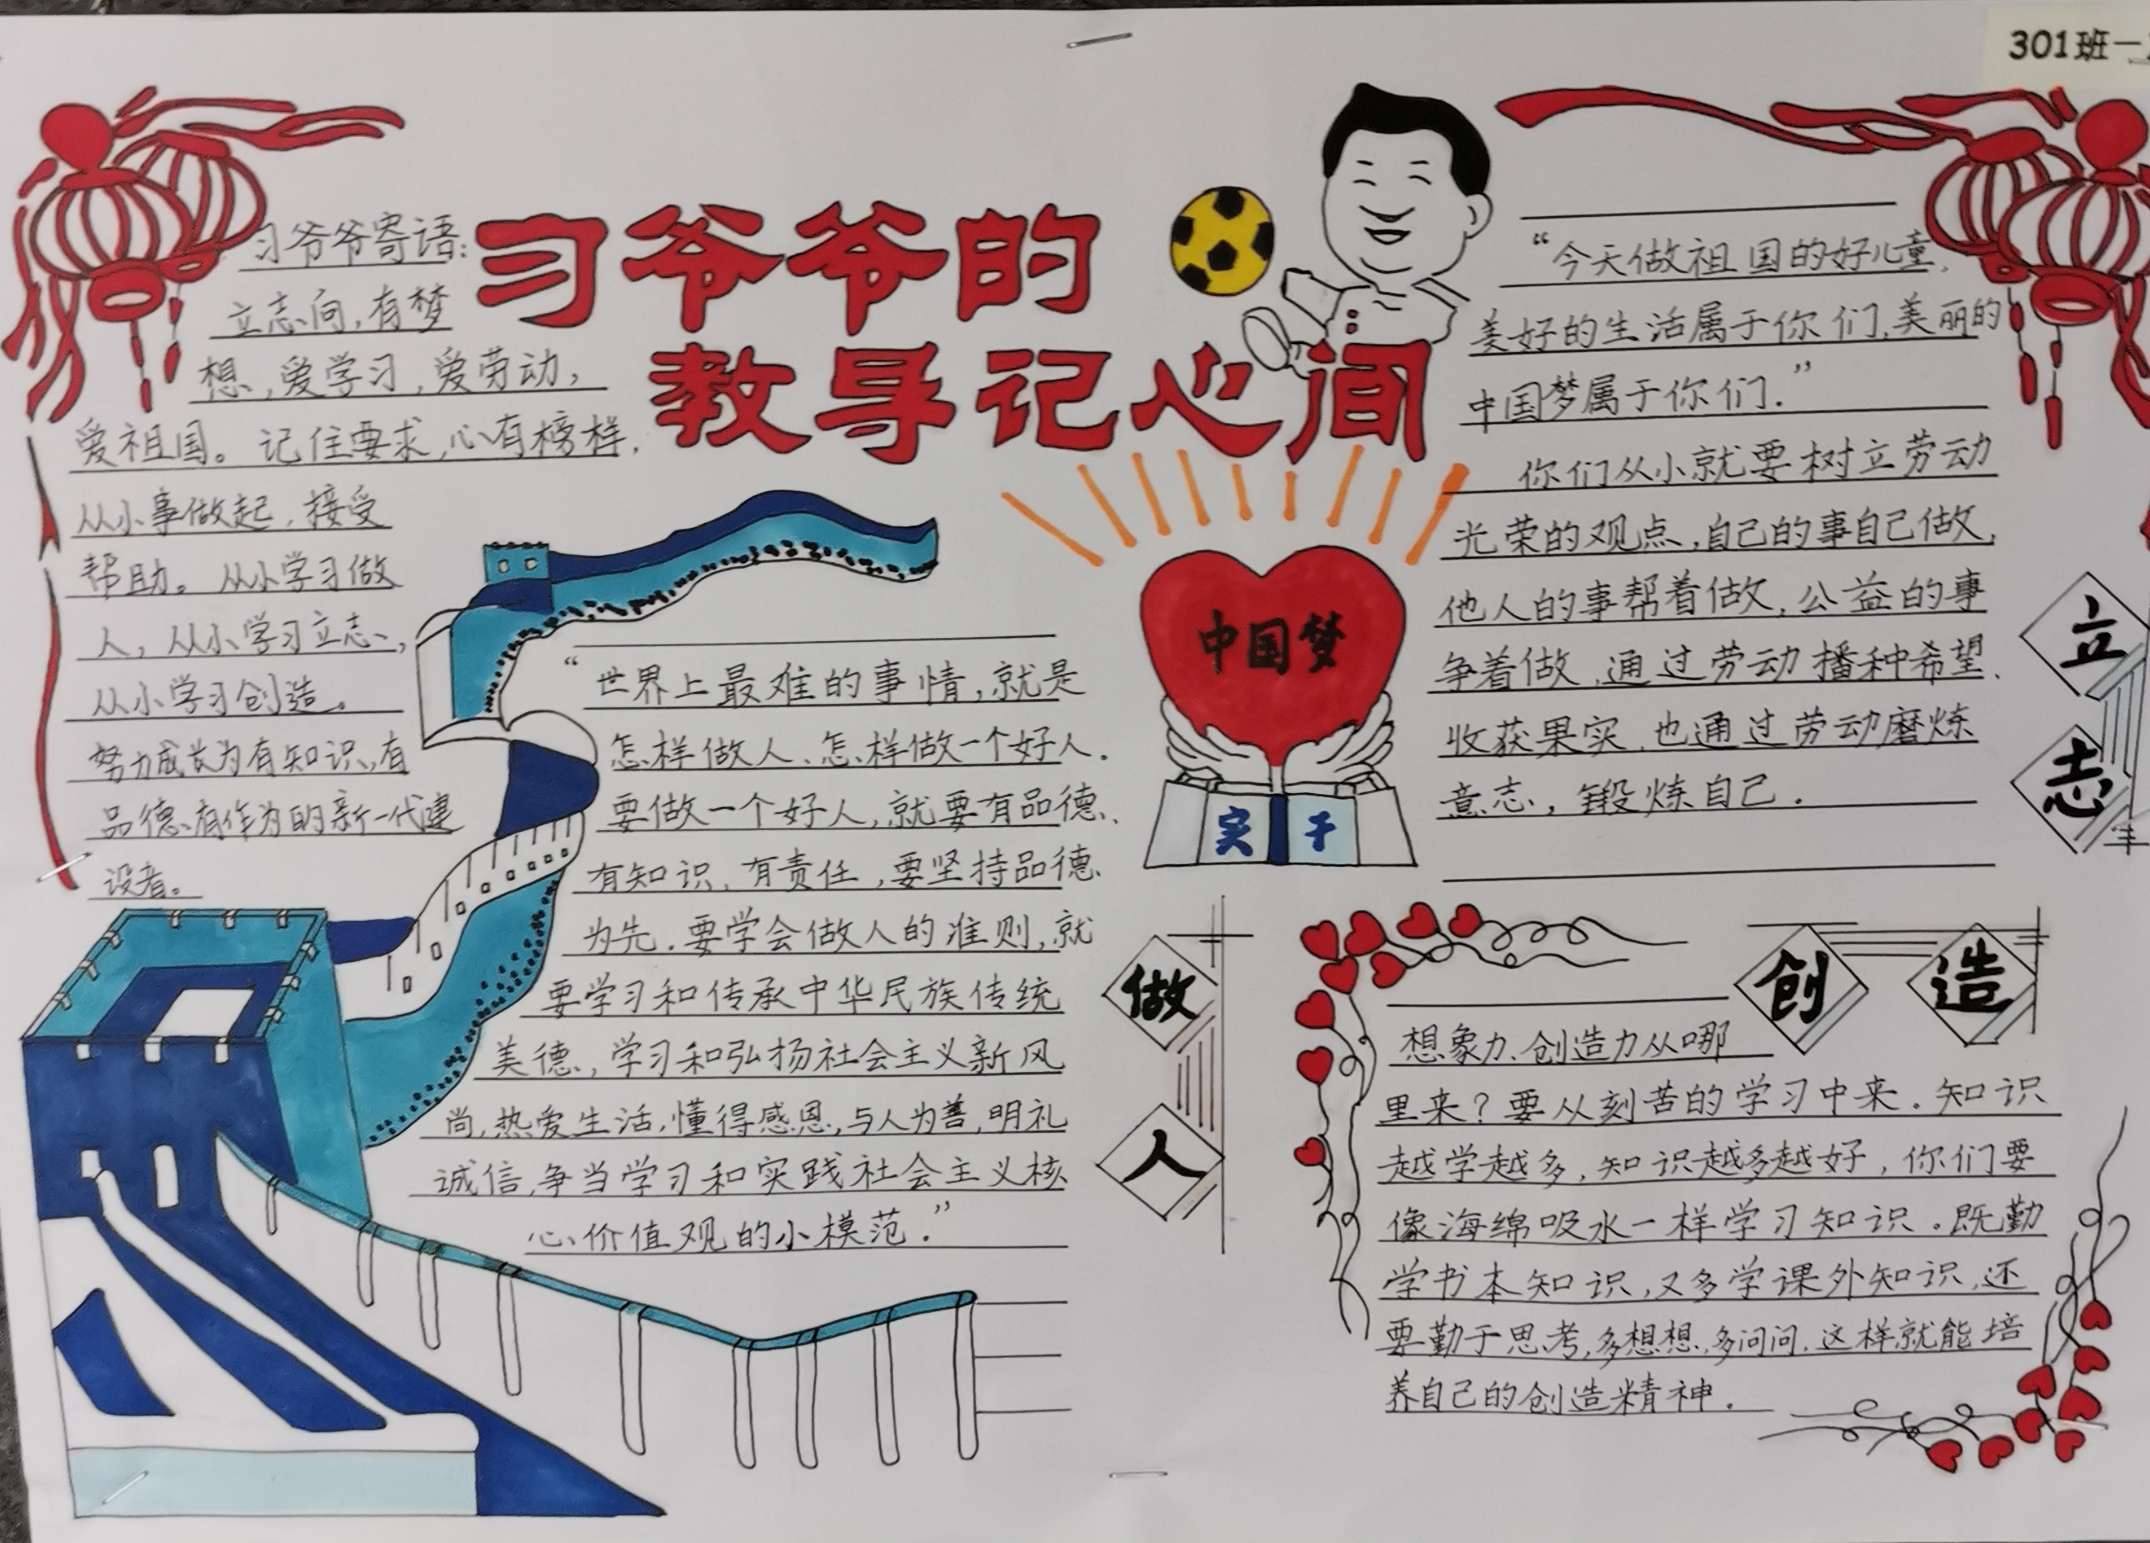 301班一
习爷爷的
教导记心间
习爷爷寄语:
立志向,有梦
想,爱学习,爱劳动,
爱祖国。记住要求,心有榜样,
从小事做起,接受
帮助。从小学习做
人,从小学习立志,
从小学习创造。
努力成长为有知识,有
品德、有作为的新一代建
设者。
“世界上最难的事情,就是
怎样做人、怎样做一个好人.
要做一个好人,就要有品德、
有知识、有责任,要坚持品德
为先.要学会做人的准则,就
要学习和传承中华民族传统
美德,学习和弘扬社会主义新风
尚,热爱生活,懂得感恩,与人为善,明礼
诚信,争当学习和实践社会主义核
心价值观的小模范.”
做
人
中国梦
实干
“今天做祖国的好儿童,
美好的生活属于你们,美丽的
中国梦属于你们.”
你们从小就要树立劳动
光荣的观点,自己的事自己做,
他人的事帮着做,公益的事
争着做,通过劳动播种希望、
收获果实,也通过劳动磨炼
意志,锻炼自己.
立
志
创造
想象力、创造力从哪
里来?要从刻苦的学习中来.知识
越学越多,知识越多越好,你们要
像海绵吸水一样学习知识.既勤
学书本知识,又多学课外知识,还
要勤于思考,多想想,多问问,这样就能培
养自己的创造精神.